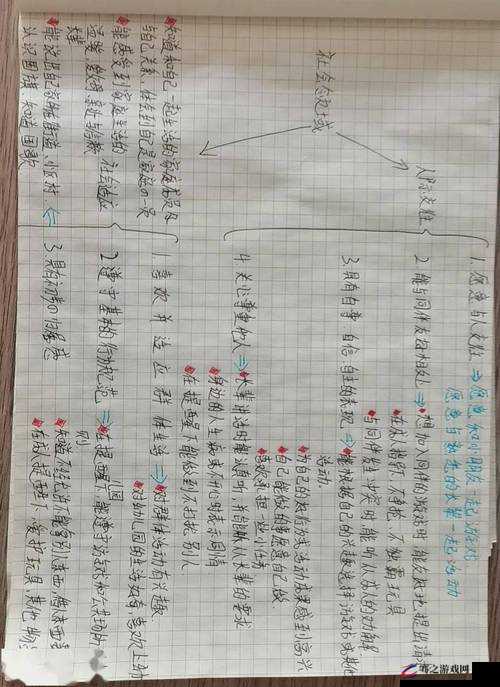 社会领域
人际交往
1. 愿意与人交往 ⇒ 愿意和小朋友一起游戏
愿意与熟悉的长辈一起活动
2. 能与同伴友好相处 ⇒ 想加入同伴的游戏时,能友好地提出请
在成人指导下,不争抢、不独霸玩具
与同伴发生冲突时,能听从成人的劝解
3. 具有自尊、自信、自主的表现 ⇒ 能根据自己的兴趣选择游戏或其他
活动.
为自己的好行为或活动成果感到高兴
自己能做的事情愿意自己做
喜欢承担一些小任务
4. 关心尊重他人 ⇒ 长辈讲话时能认真听,并能听从长辈的要求
身边的人生病或不开心时表示同情
在提醒下能做到不打扰别人
社会适应
1. 喜欢并适应群体生活 ⇒ 对群体活动有兴趣
对幼儿园的生活好奇,喜欢上幼
2. 遵守基本的行为规范 ⇒ 在提醒下,能遵守游戏和公共场所
知道不经允许不能拿别人东西,借东西要
在成人提醒下,爱护玩具其他物
3. 具有初步的归属感
知道和自己一起生活的家庭成员及
与自己关系,体会到自己是家庭の一员
能感受到家庭生活的
温暖,爱父母,亲近与信赖
长辈
能说出自己家所在街道、小区、村
认识国旗,知道国歌
嗨之游戏网